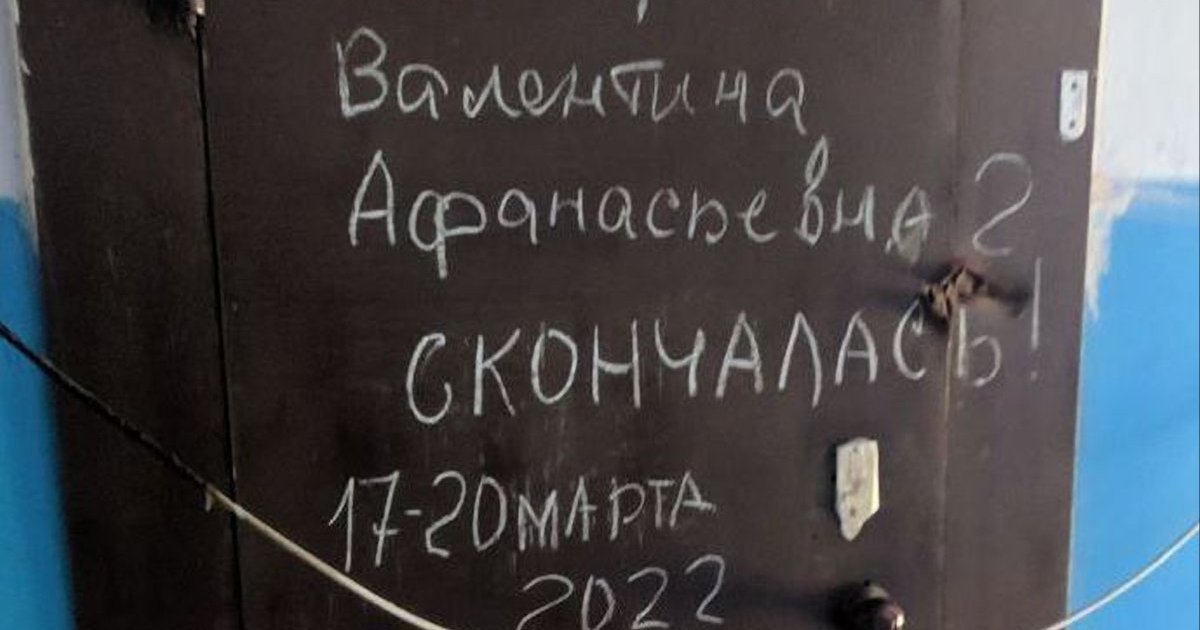 Валентина
Афанасьевна 2
СКОНЧАЛАСЬ!
17-20 МАРТА
2022